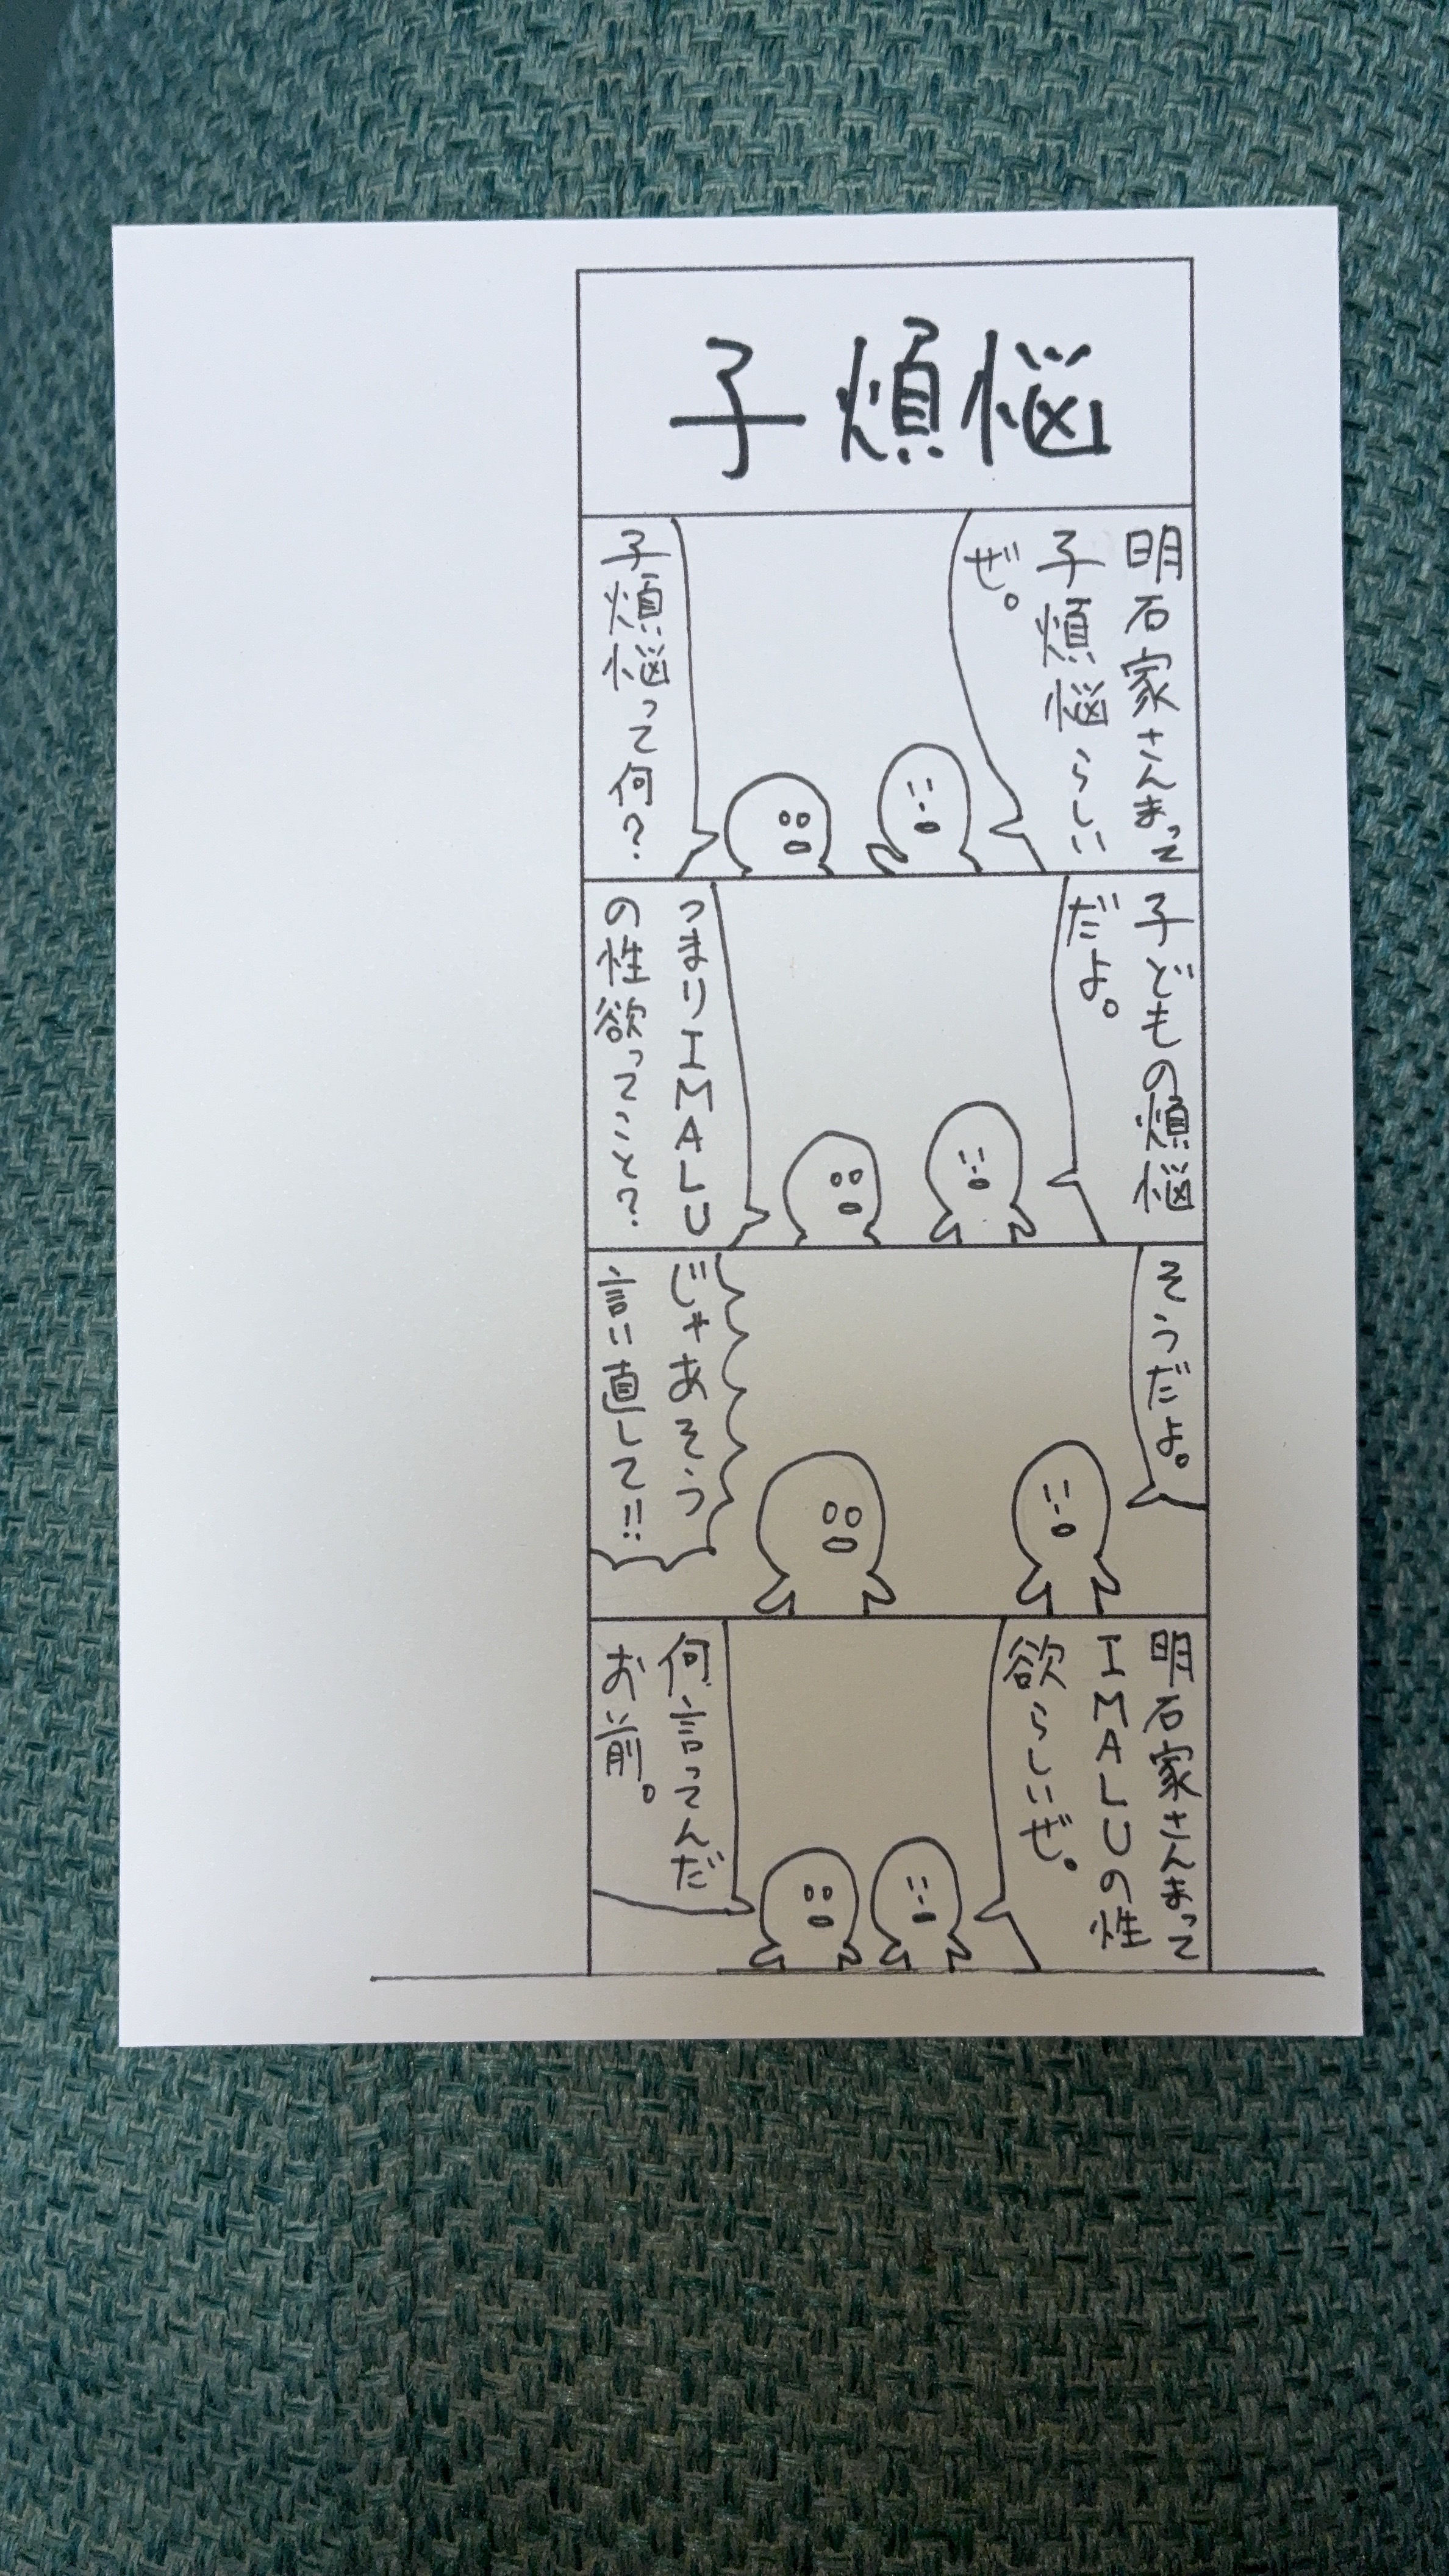 子煩悩
明石家さんまって
子煩悩らしい
ぜ。
子煩悩って何?
子どもの煩悩
だよ。
つまりIMALU
の性欲ってこと?
そうだよ。
じゃあそう
言い直して!!
明石家さんまって
IMALUの性
欲らしいぜ。
何言ってんだ
お前。